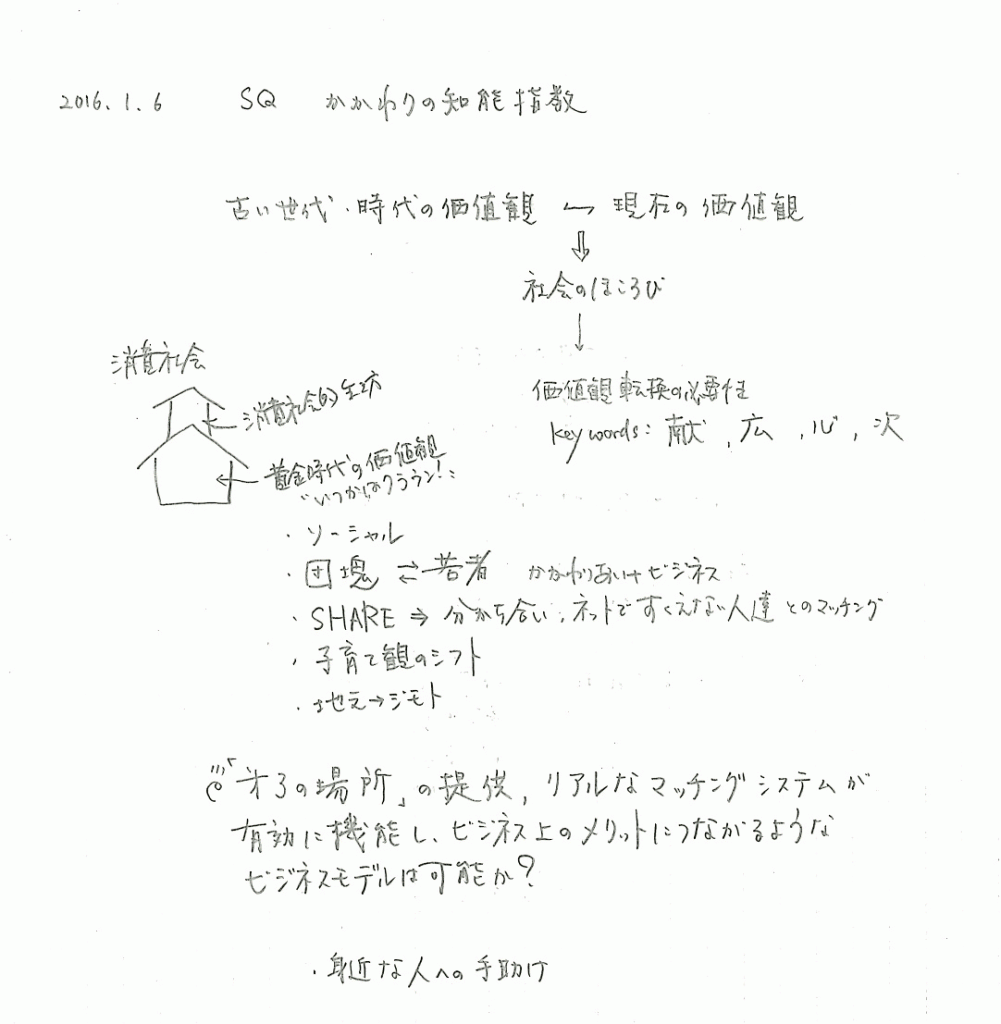 2016.1.6 SQ かかわりの知能指数
古い世代・時代の価値観 ↔ 現在の価値観
⇓
社会のほころび
↓
価値観転換の必要性
keywords: 献, 広, 心, 次
消費社会
← 消費社会的
← 黄金時代の価値観
"いつかはクラウン!"
・ソーシャル
・団塊 ⇄ 若者 かかわりあい ビジネス
・SHARE ⇒ 分かち合い、ネットですくえない人達とのマッチング
・子育て観のシフト
・地元→ジモト
「才3の場所」の提供、リアルなマッチングシステムが
有効に機能し、ビジネス上のメリットにつながるような
ビジネスモデルは可能か?
・身近な人への手助け